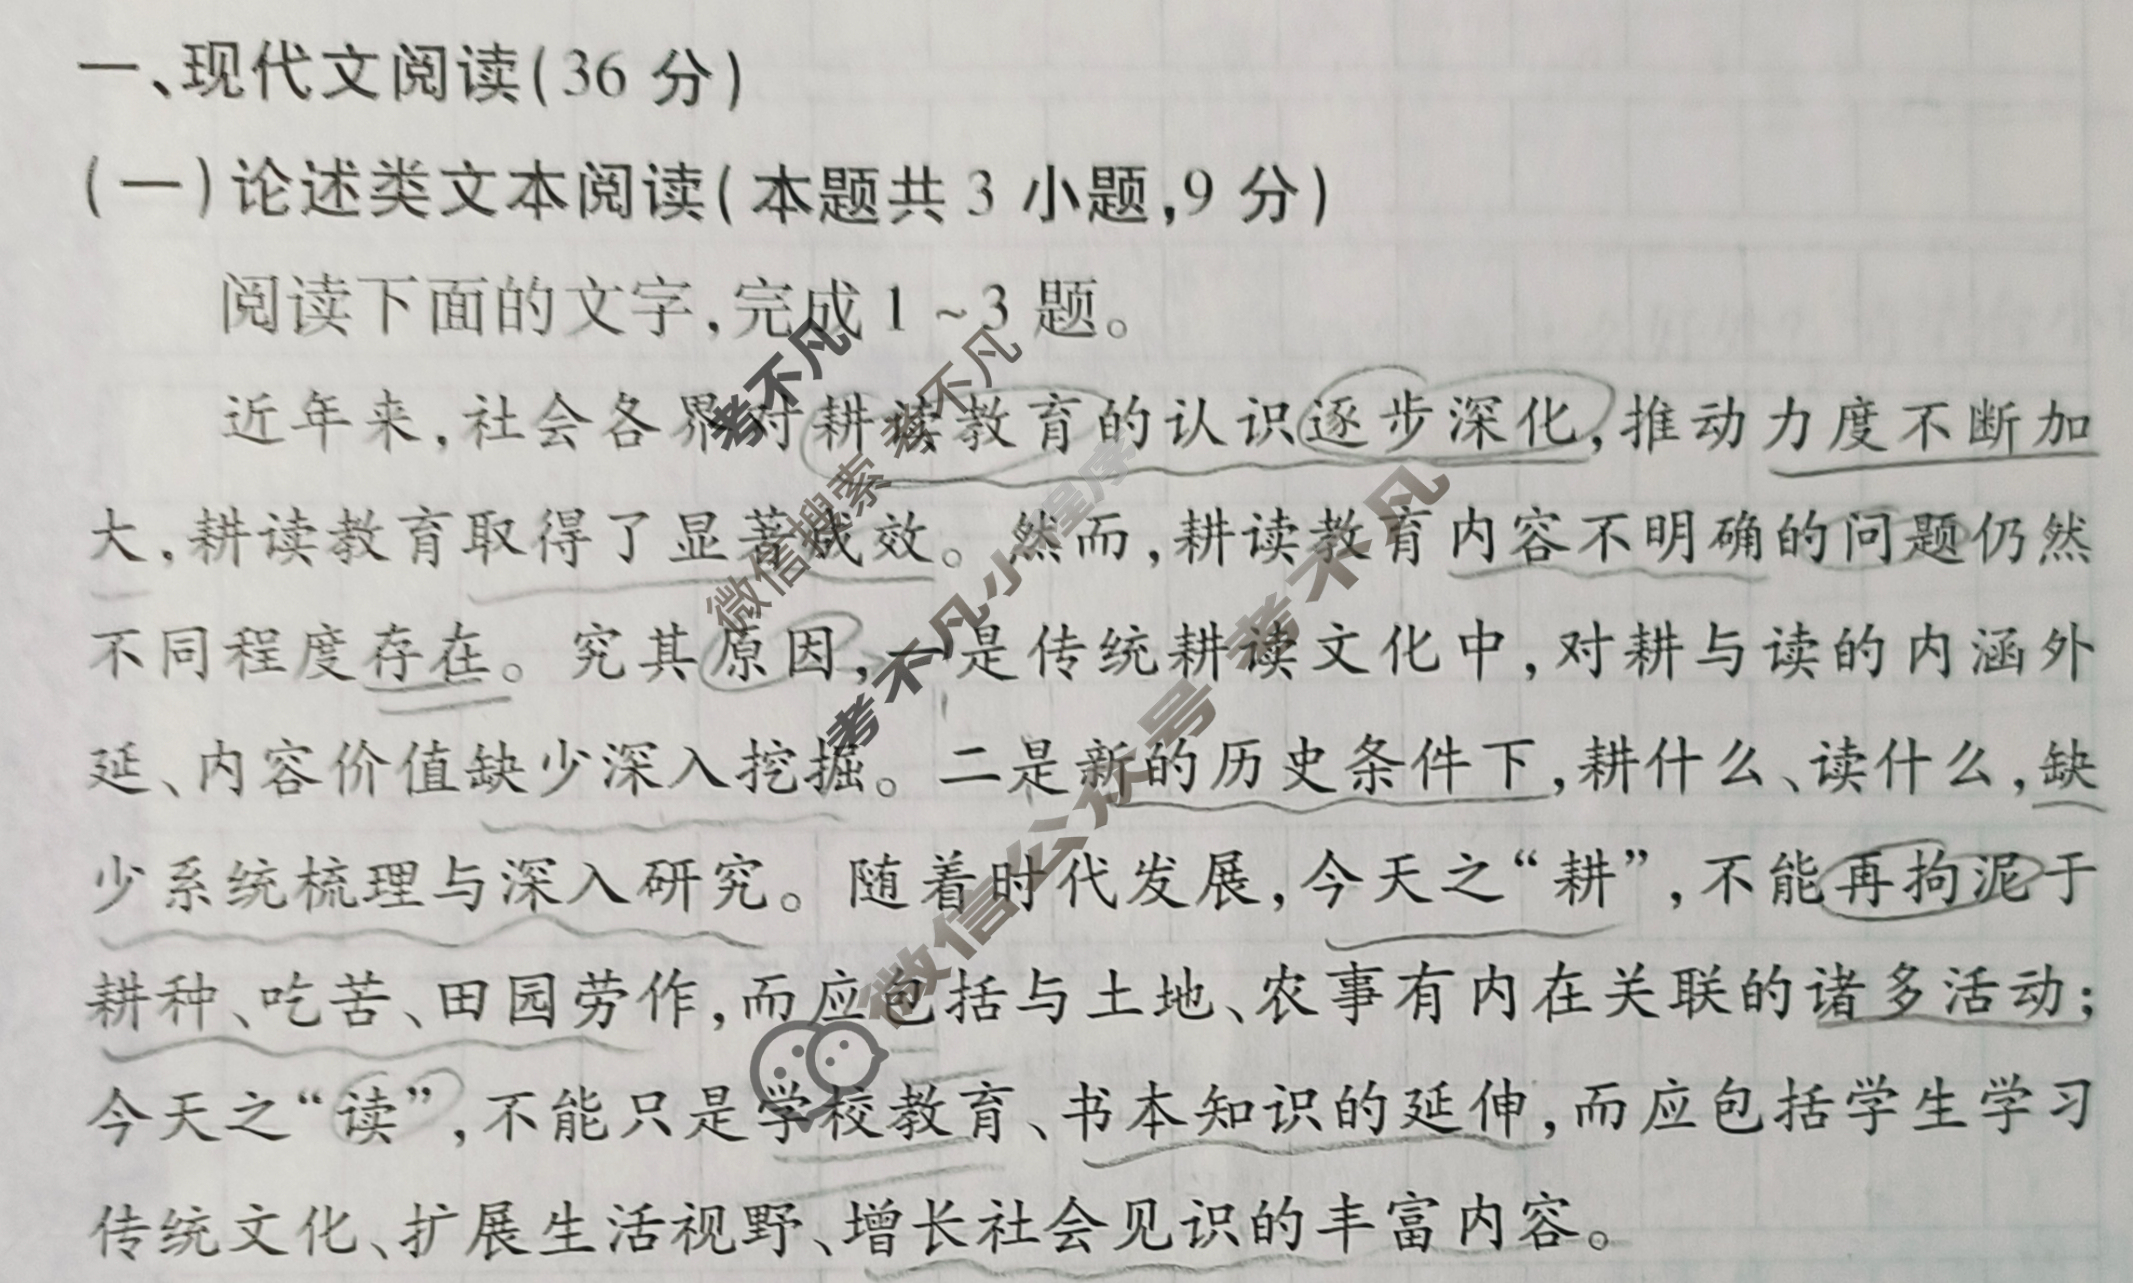 一、现代文阅读(36 分)
(一)论述类文本阅读(本题共 3 小题,9 分)
阅读下面的文字,完成 1 ~ 3 题。
近年来,社会各界对耕读教育的认识逐步深化,推动力度不断加
大,耕读教育取得了显著成效。然而,耕读教育内容不明确的问题仍然
不同程度存在。究其原因,一是传统耕读文化中,对耕与读的内涵外
延、内容价值缺少深入挖掘。二是新的历史条件下,耕什么、读什么,缺
少系统梳理与深入研究。随着时代发展,今天之“耕”,不能再拘泥于
耕种、吃苦、田园劳作,而应包括与土地、农事有内在关联的诸多活动;
今天之“读”,不能只是学校教育、书本知识的延伸,而应包括学生学习
传统文化、扩展生活视野、增长社会见识的丰富内容。
考不凡
微信搜索 考不凡
考不凡小程序
微信公众号 考不凡